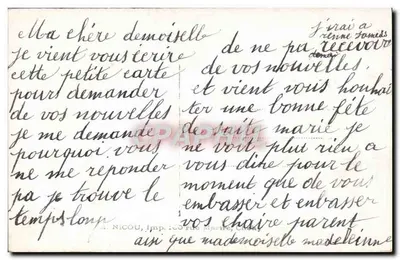 Ma chére demoiselle
je vient vous écrire
cette petite carte
pours demander
de vos nouvelles
je me demande
pourquoi vous
ne me reponder
pa je trouve le
temps loup
j'irai a
renne samedi
de ne pa recevoir
de vos nouvelles.
et vient vous souhai
ter une bonne féte
de saite marie je
ne voit plut rien a
vous dire pour le
moment que de vous
embasser et enbasser
vos chaire parent
ainsi que mademoiselle madeleinne
A. NICOU, Imp.